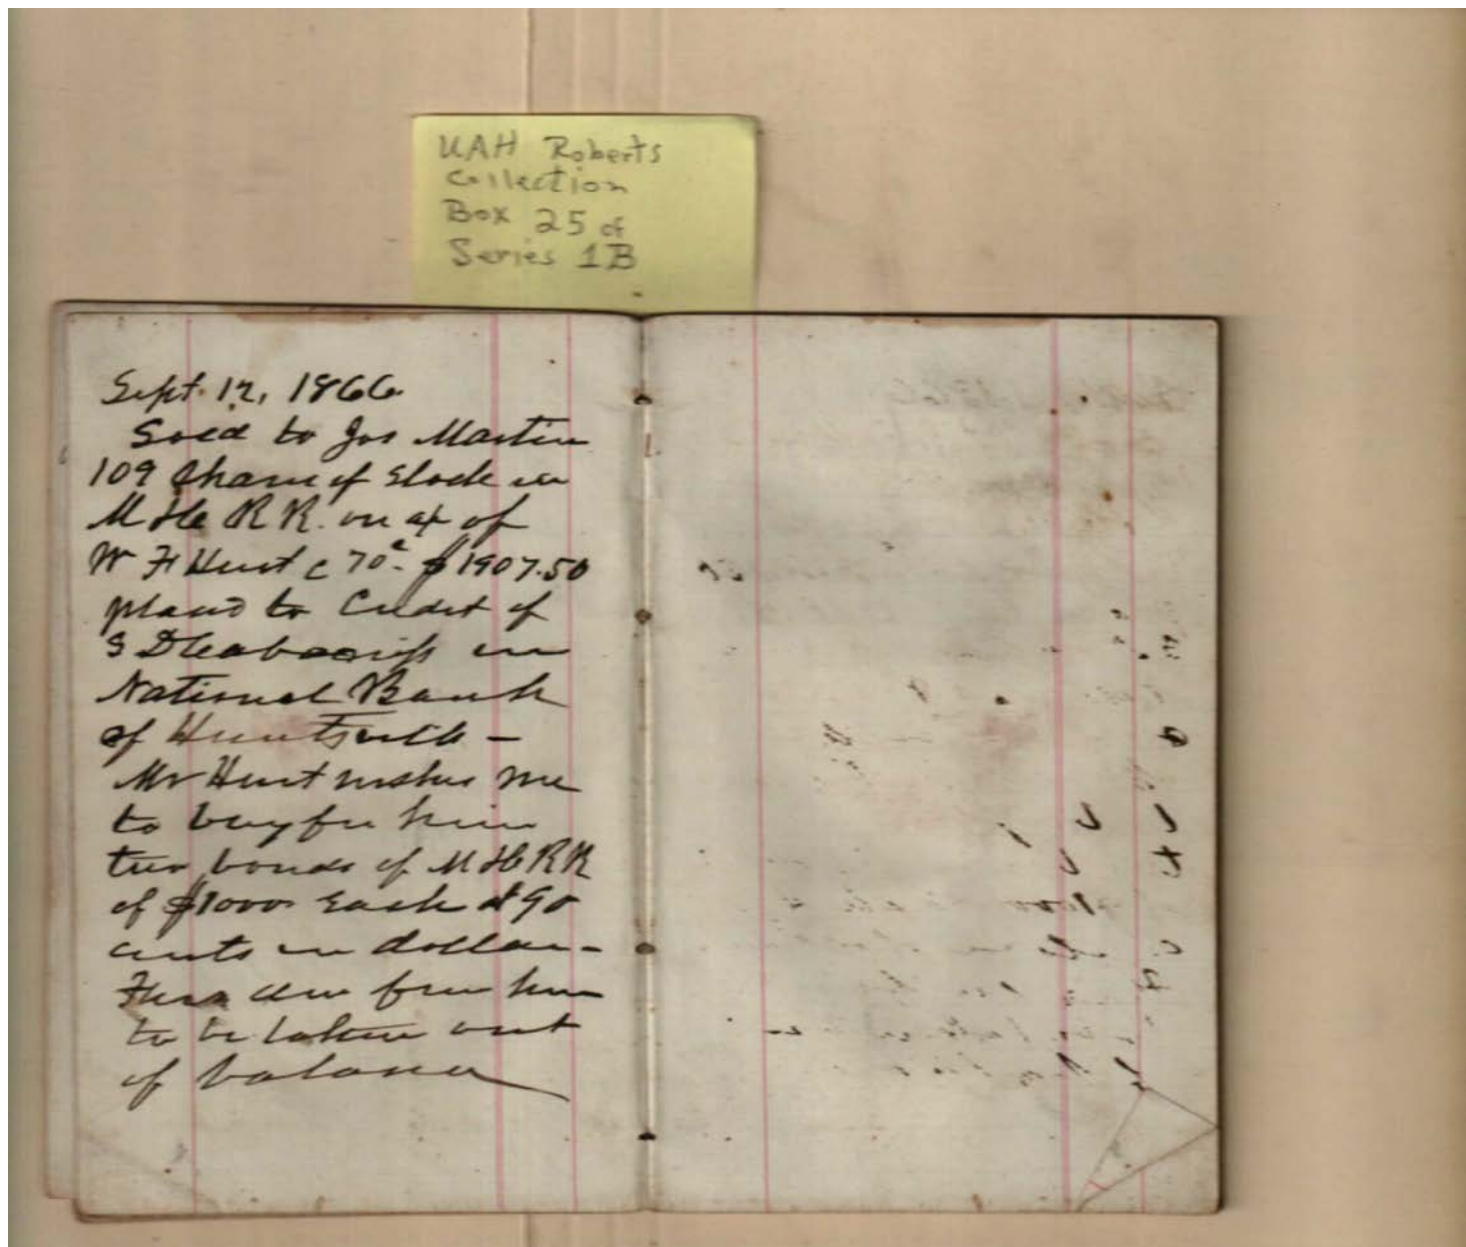 UAH Roberts
Collection
Box 25 of
Series 1B
Sept. 12, 1866
Sold to Jos Martin
109 Shares of Stock in
M & C R R. on a/c of
W F Hunt c 70c $1907.50
placed to Credit of
S D Cabaniss in
National Bank
of Huntsville —
Mr Hunt wishes me
to buy for him
two bonds of M & C R R
of $1000 Each at 90
cents in dollar —
to be taken out
of balance